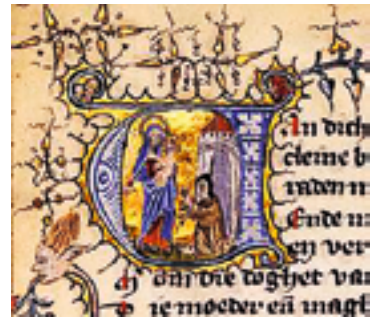 Van dich
cleine b
raden m
Ende m
en ver
om die doghet van
ie moeder eñ magh